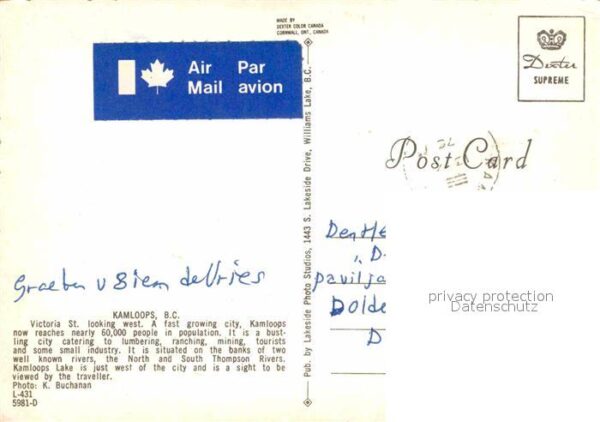 MADE BY
DEXTER COLOR CANADA
CORNWALL, ONT., CANADA
Air Par
Mail avion
Dexter
SUPREME
Post Card
Pub. by Lakeside Photo Studios, 1443 S. Lakeside Drive, Williams Lake, B.C.
Groeten v Siem de Vries
Den He
„ D
pavilja
Dolde
D
privacy protection
Datenschutz
KAMLOOPS, B.C.
Victoria St. looking west. A fast growing city, Kamloops
now reaches nearly 60,000 people in population. It is a bust-
ling city catering to lumbering, ranching, mining, tourists
and some small industry. It is situated on the banks of two
well known rivers, the North and South Thompson Rivers.
Kamloops Lake is just west of the city and is a sight to be
viewed by the traveller.
Photo: K. Buchanan
L-431
5981-D